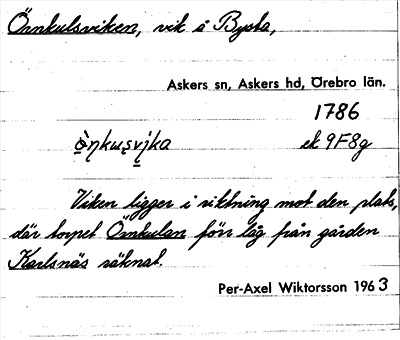 Örnkulsviken, vik å Bysta,
Askers sn, Askers hd, Örebro län.
1786
ek 9F8g
Viken ligger i riktning mot den plats,
där torpet Örnkulan förr låg från gården
Karlsnäs räknat.
Per-Axel Wiktorsson 1963